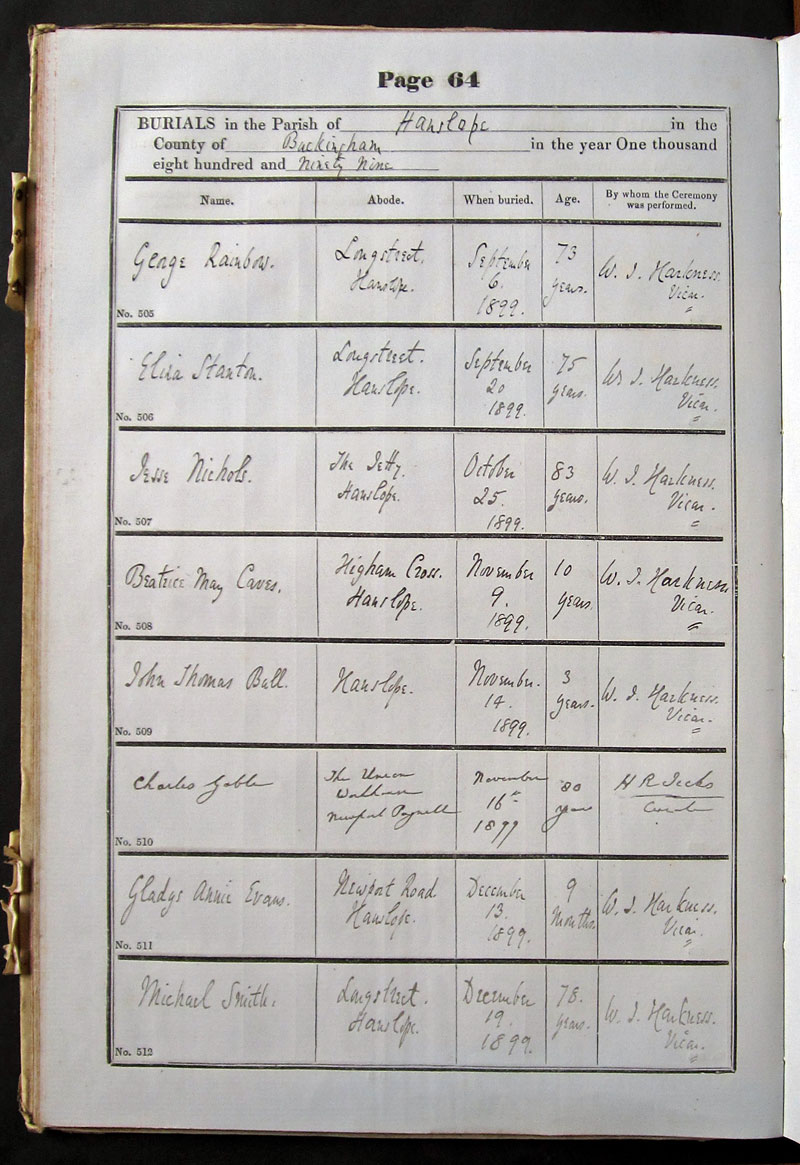 Page 64
BURIALS in the Parish of Hanslope in the
County of Buckingham in the year One thousand
eight hundred and Ninety Nine
Name. Abode. When buried. Age. By whom the Ceremony was performed.
George Rainbow. Longstreet. September 73 W. J. Harkness.
Hanslope. 6. years. Vicar.
No. 505 1899.
Eliza Stanton. Longstreet. September 75 W. J. Harkness.
Hanslope. 20 years. Vicar.
No. 506 1899.
Jesse Nichols. The Jetty. October 83 W. J. Harkness.
Hanslope. 25. years. Vicar.
No. 507 1899.
Beatrice May Caves. Higham Cross. November 10 W. J. Harkness
Hanslope. 9. years. Vicar.
No. 508 1899.
John Thomas Ball. Hanslope. November. 3 W. J. Harkness.
14. years. Vicar.
No. 509 1899.
Charles Gable The Union November 80 H R
Workhouse 16th years Curate
Newport Pagnell 1899
No. 510
Gladys Annie Evans. Newport Road December 9 W. J. Harkness.
Hanslope. 13. Months. Vicar.
No. 511 1899.
Michael Smith. Longstreet. December 78. W. J. Harkness.
Hanslope. 19. years. Vicar.
No. 512 1899.